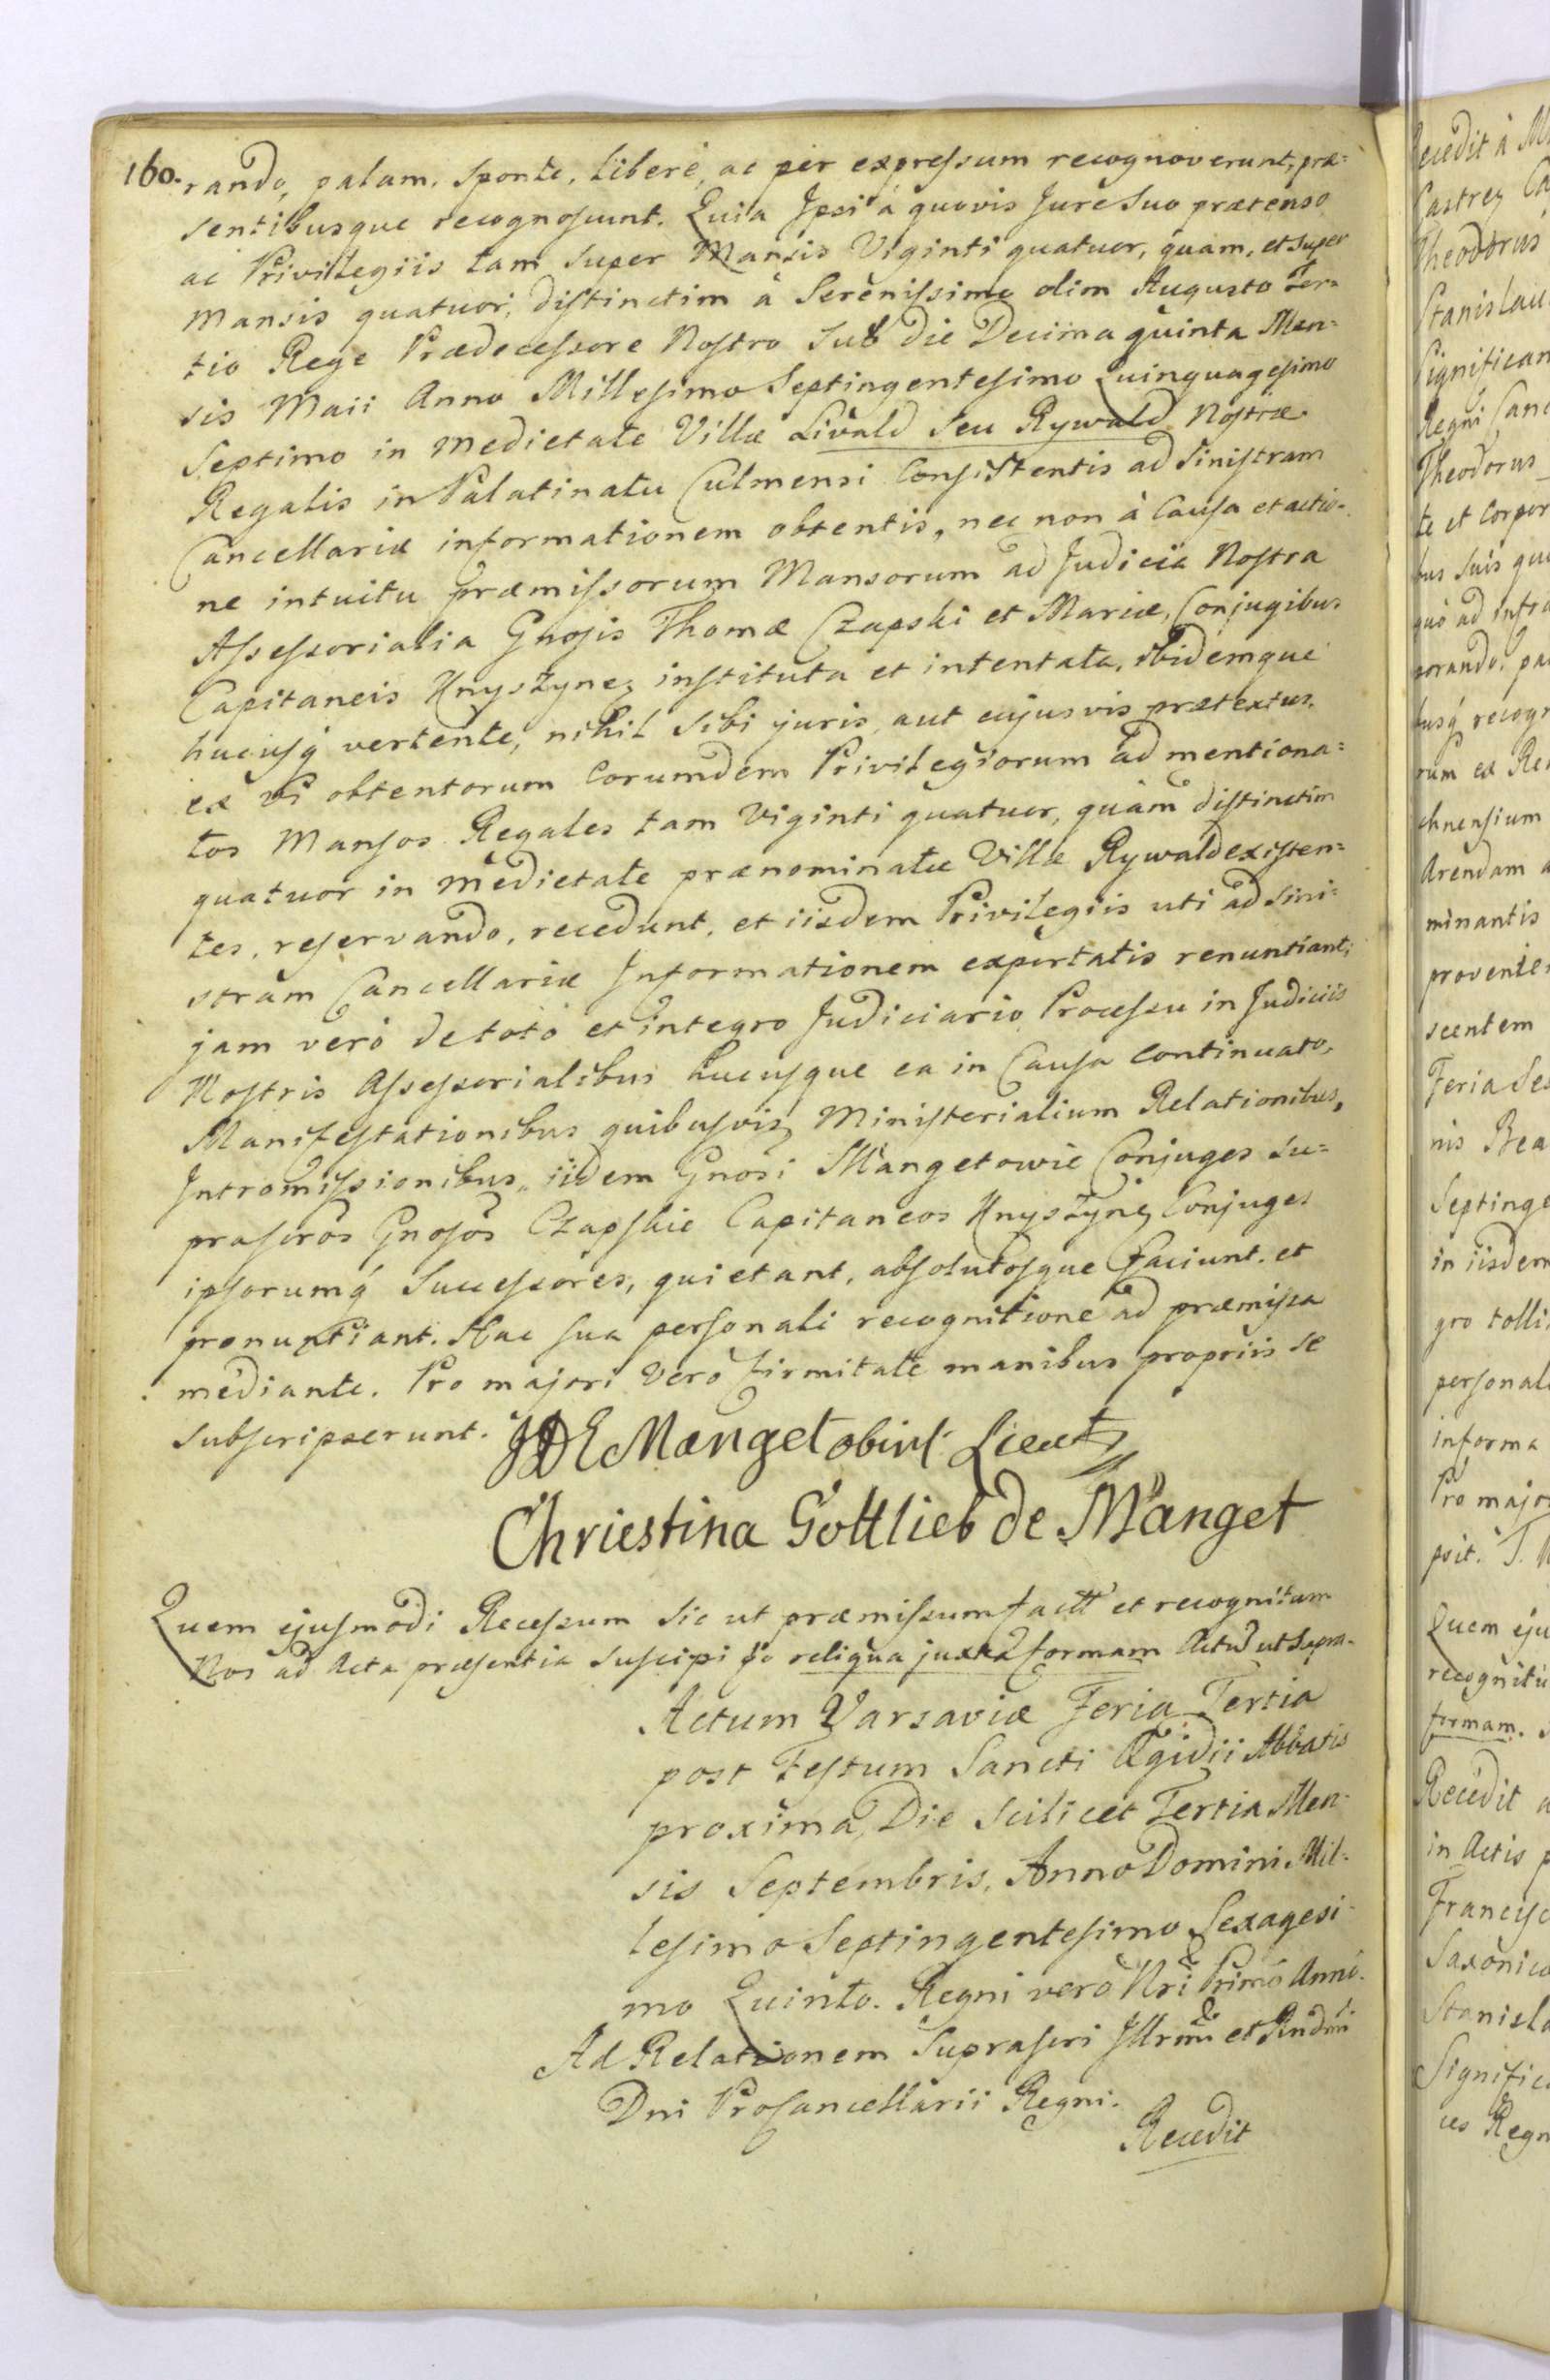 160. rando, palam, sponte, liberè, ac per expressum recognoverunt, præ=
sentibusque recognoscunt. Quia Ipsi à quovis Jure Suo prætenso
ac Privilegiis tam super Mansis Viginti quatuor, quam, et super
Mansis quatuor, distinctim à Serenissimo olim Augusto Ter=
tio Rege Prædecessore Nostro sub die Decima quinta Men=
sis Maii Anno Millesimo Septingentesimo Quinquagesimo
Septimo in medietate Villæ Livald seu Rywald Nostræ
Regalis in Palatinatu Culmensi Consistentis ad sinistram
Cancellariæ informationem obtentis, nec non à Causa et actio=
ne intuitu præmissorum Mansorum ad Judicia Nostra
Assessorialia Gnosis Thomæ Czapski et Mariæ, Conjugibus
Capitaneis Knyszynez instituta et intentata, ibidemque
hucusq́ vertente, nihil sibi juris, aut cujusvis prætextus,
ex vi obtentorum eorumdem Privilegiorum ad mentiona=
tos Mansos Regales tam Viginti quatuor, quàm distinctim
quatuor in medietate prænominatæ Villæ Rywald existen=
tes, reservando, recedunt, et iisdem Privilegiis uti ad sini=
stram Cancellariæ Informationem exportatis renuntiant;
jam verò de toto et integro Judiciario Processu in Judiciis
Nostris Assessorialibus hucusque ea in Causa continuato,
Manifestationibus quibusvis, Ministerialium Relationibus,
Intromissionibus, iidem Gnosi Mangetowie Conjuges su=
prascros Gnosos Czapskie Capitaneos Knyszynez Conjuges
ipsorumq́ Successores, quietant, absolutosque faciunt, et
pronuntiant. Hac sua personali recognitione ad præmissa
mediante. Pro majori verò firmitate manibus propriis se
subscripserunt.
JDE Manget obirst Lieut
Chriestina Gottlieb de Manget
Quem ejusmodi Recessum sic ut præmissum factt et recognitum
Nos ad Acta præsentia suscipi reliqua juxta formam Actū ut supra.
Actum Varsaviæ Feria Tertia
post Festum Sancti Ægidii Abbatis
proxima, Die scilicet Tertia Men=
sis Septembris, Anno Domini Mil=
lesimo Septingentesimo Sexagesi=
mo Quinto. Regni vero Nri Primo Anno.
Ad Relationem Suprascri Illrmi et Rndmi
Dni ProCancellarii Regni.
Recedit